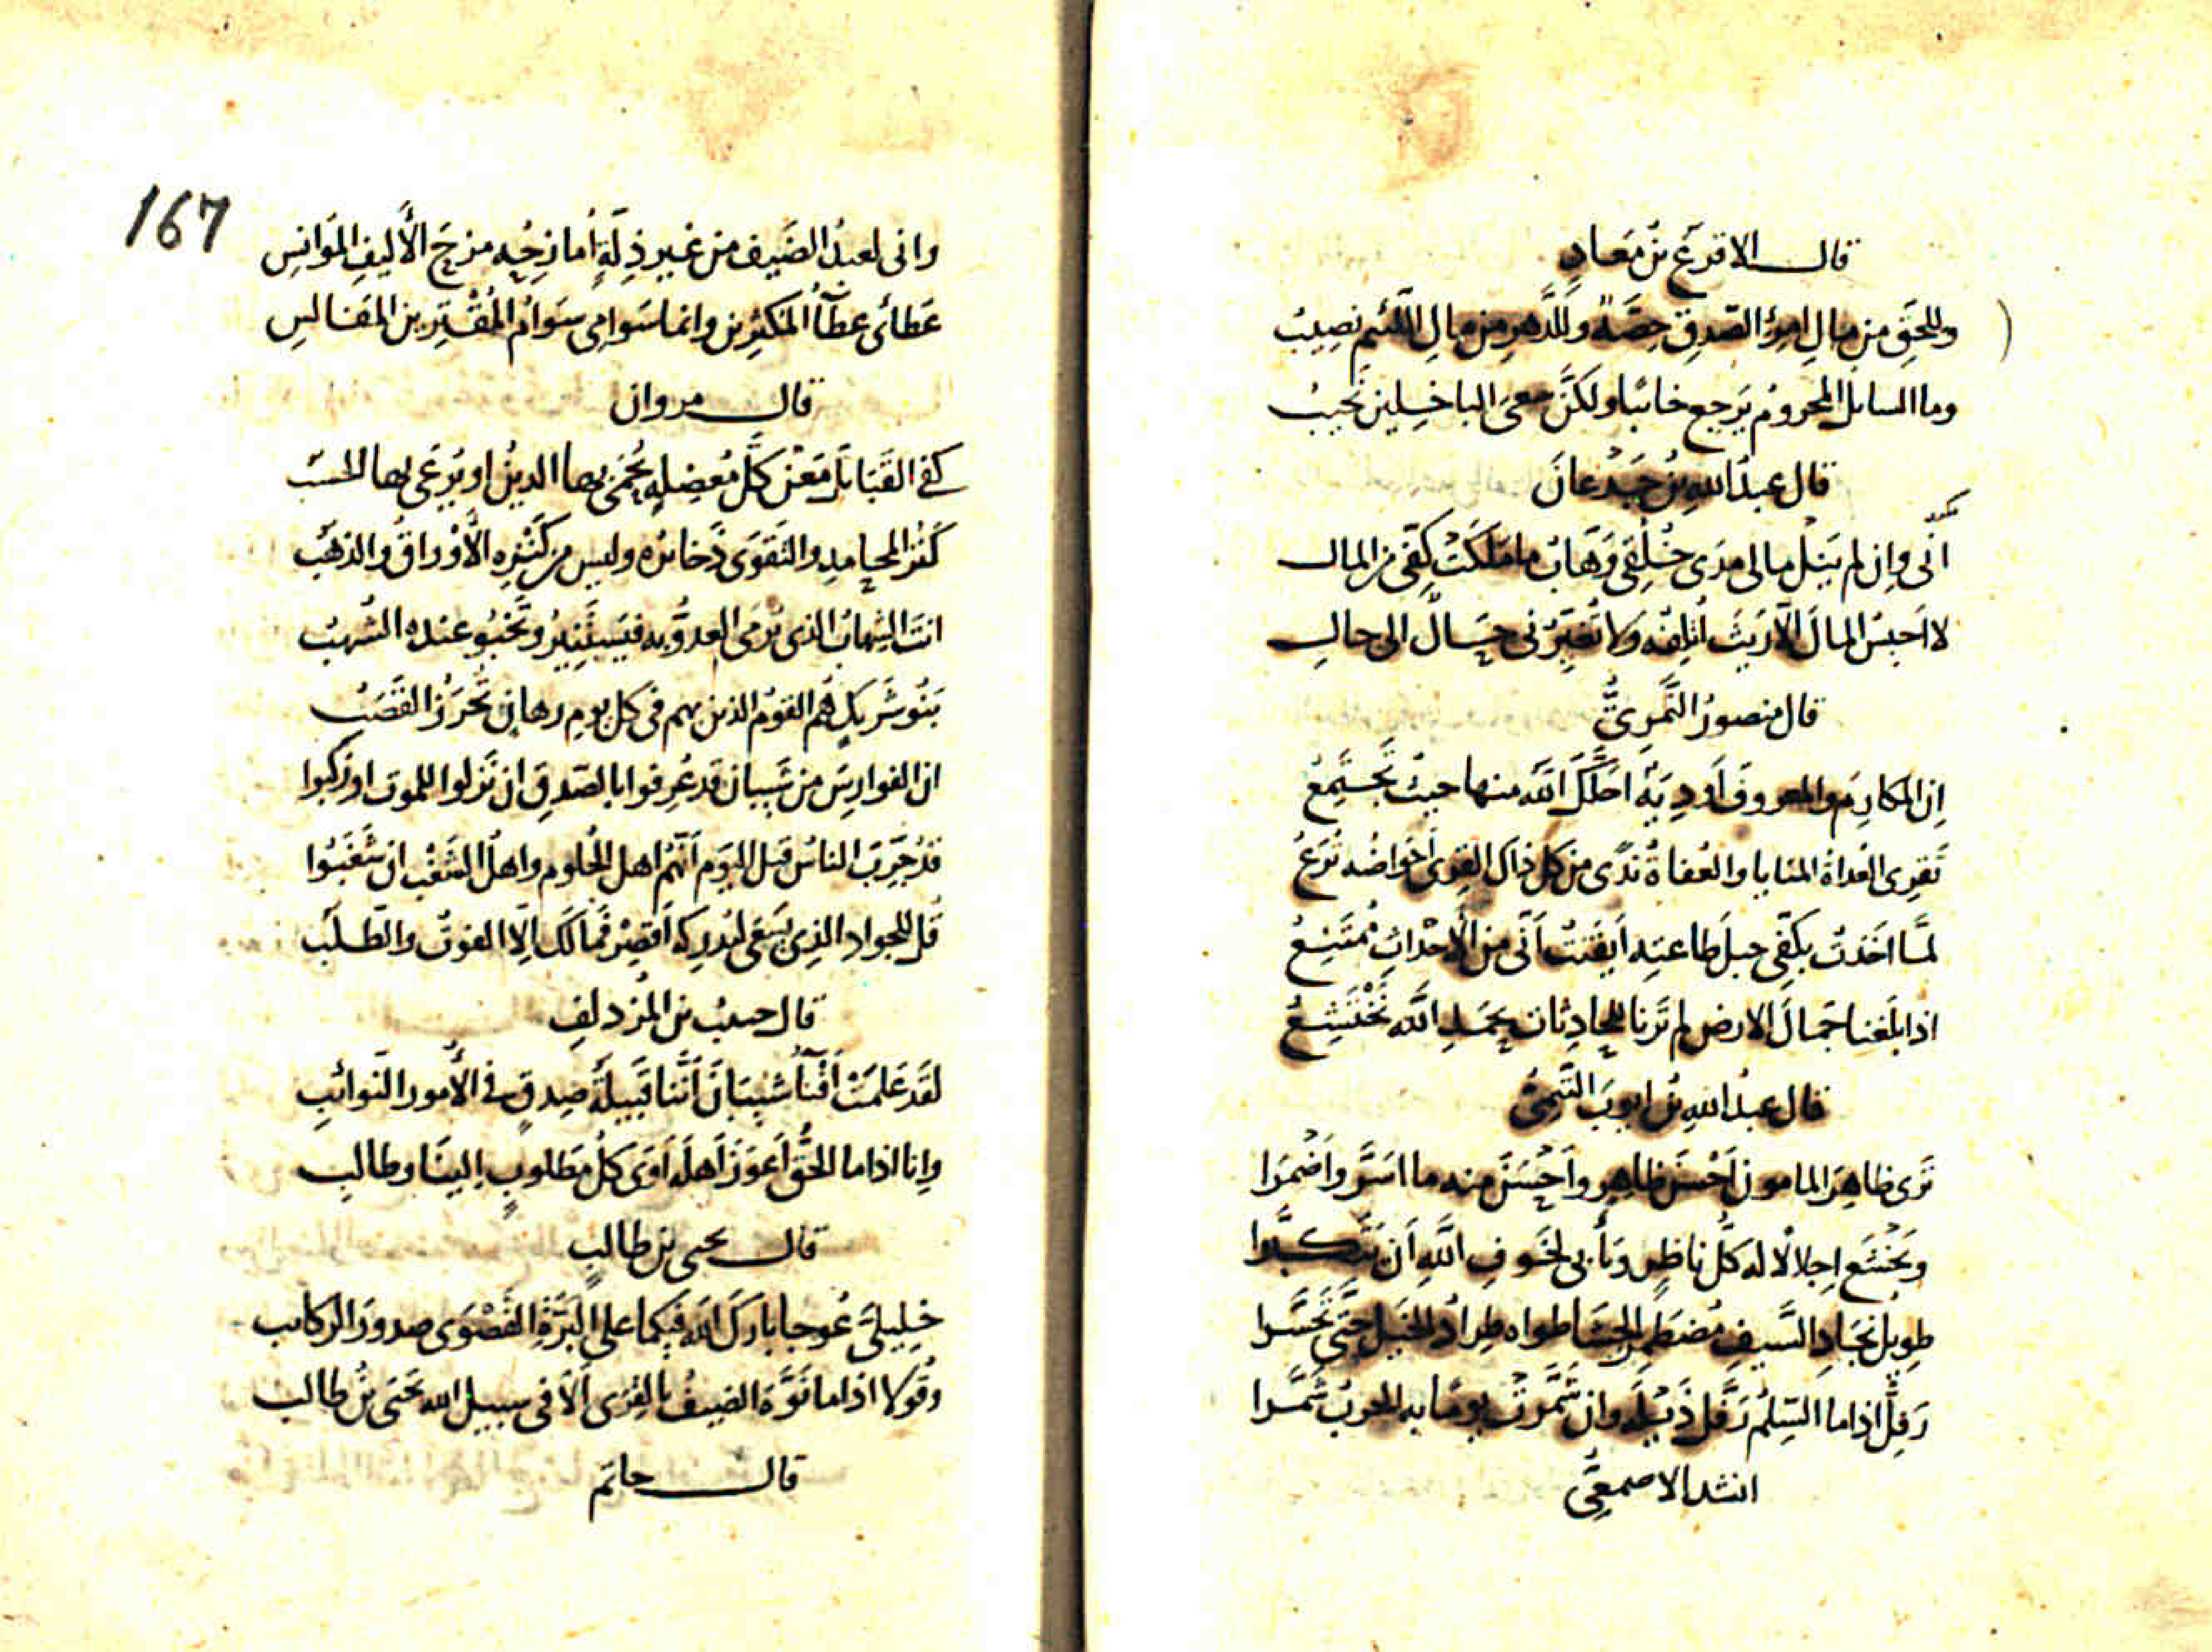 قال الاقرع بن معاد
وللحق من مال امرئ الصدق حصة وللدهر من مال اللئيم نصيب
وما السايل المحروم يرجع خائبا ولكن معى الباخلين نخيب
قال عبد الله بن جدعان
انى وان لم ينل مالى مدى خلقى وهاب ما ملكت كفى من المال
لا احبس المال الا ريث اتلفه ولا تغيرنى حال الى حال
قال منصور النمرى
ان المكارم والمعروف اودية احلك الله منها حيث تجتمع
تقرى العداة المنايا والعفاة ندى من كل ذاك القرى احواضه ترع
لما اخذت بكفى حبل طاعته ايقنت انى من الاحداث ممتنع
اذا بلغنا جمال الارض لم ترنا للحادثات بحمد الله نختشع
قال عبد الله بن ايوب التيمى
ترى ظاهر المامون احسن ظاهر واحسن منه ما اسر واضمرا
ويخشع اجلالا له كل ناظر ويأبى لخوف الله ان يتكبرا
طويل نجاد السيف مضطمر الحشا طواه طراد الخيل حتى تحسرا
رفل اذا ما السلم رفل ذيله وان شمرت يوما به الحرب شمرا
انشد الاصمعى
167
وانى لعبد الضيف من غير ذلة امازحه مزح الأليف الموانس
عطائى عطآء المكثرين وانما سوامى سوام المقترين المفالس
قال مروان
كفى القبائل معن كل معضلة يحمى بها الدين او يرعى بها الحسب
كنز المحامد والتقوى ذخائره وليس من كنزه الأوراق والذهب
انت الشهاب الذى يرمى العدو به فيستنير وتخبو عنده الشهب
بنو شريك هم القوم الذين بهم فى كل يوم رهان تحرز القصب
ان الفوارس من شيبان قد عرفوا بالصدق ان نزلوا للموت او ركبوا
قد جرب الناس قبل اليوم انهم اهل الحلوم واهل الشغب ان شغبوا
قل للجواد الذى يسعى ليدركه اقصر فمالك الا الفوت والطلب
قال حبيب بن المزدلف
لقد علمت أفنآء شيبان أننا قبيلة صدق فى الأمور النوائب
وإنا اذا ما الحق أعوز أهله أوى كل مطلوب الينا وطالب
قال يحيى بن طالب
خليلى عوجا بارك الله فيكما على البرة القصوى صدور الركائب
وقولا اذا ما نوه الضيف بالقرى الا فى سبيل الله يحيى بن طالب
قال حاتم